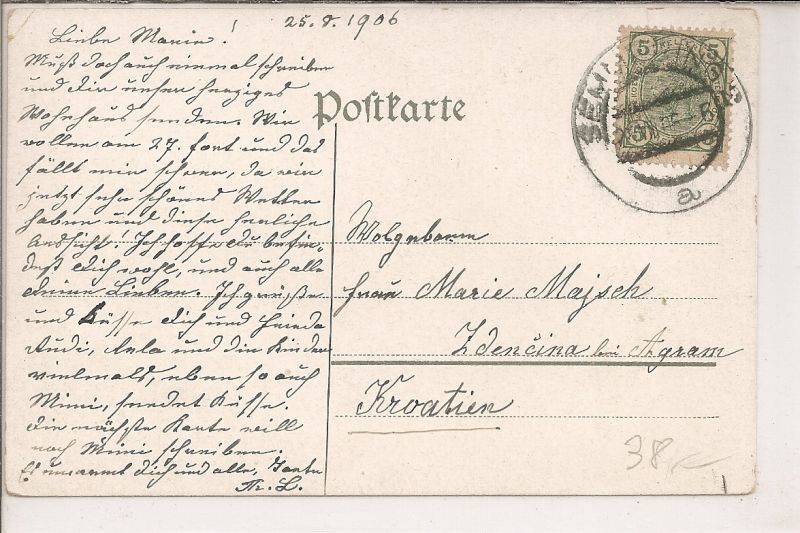 25.8.1906
Liebe Marie!
Muß doch auch einmal schreiben
und dir unser herziges
Wohnhaus senden. Wir
wollen am 27. fort und das
fällt mir schwer, da wir
jetzt sehr schönes Wetter
haben und diese herrliche
Aussicht! Ich hoffe du befin-
dest dich wohl, und auch alle
deine Lieben. Ich grüße
und Küsse dich und
Rudi, und die Kinder
vielmals, eben so auch
Mimi, sendet Küsse.
Die nächste Karte will
noch Mimi schreiben.
Es umarmt dich und alle,
Postkarte
5 5
5
a
Wolgeboren
Frau Marie Majsch
Zdenčina bei Agram
Kroatien
38